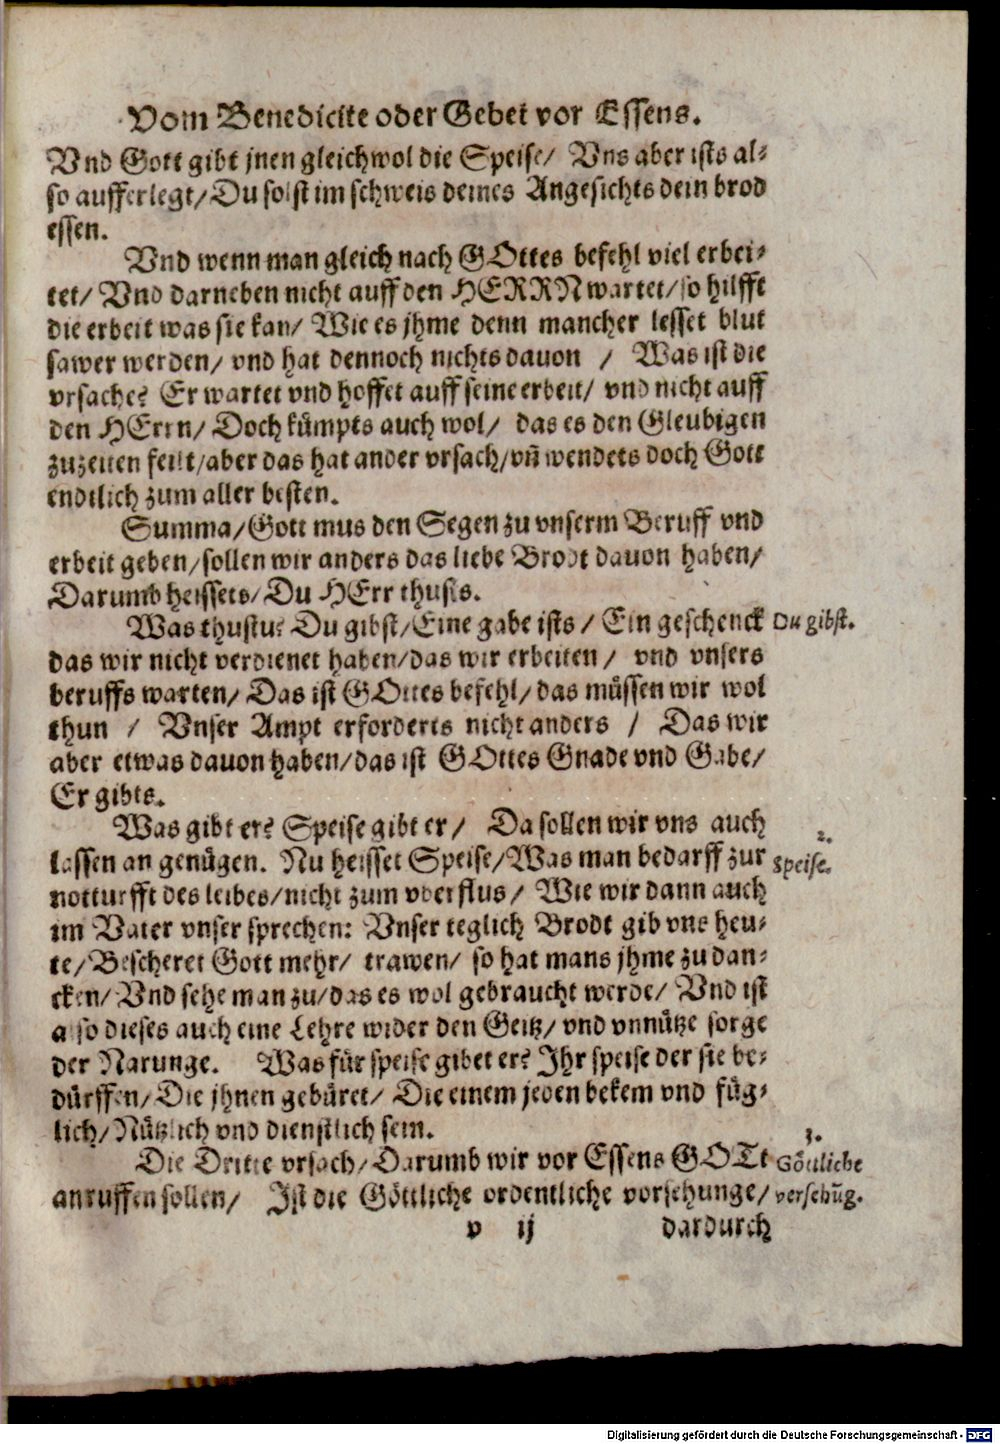 Vom Benedicite oder Gebet vor Essens.
Vnd Gott gibt jnen gleichwol die Speise/ Vns aber ists al-
so aufferlegt/ Du solst im schweis deines Angesichts dein brod
essen.
Vnd wenn man gleich nach GOttes befehl viel erbei-
tet/ Vnd darneben nicht auff den HERRN wartet/ so hilfft
die erbeit was sie kan/ Wie es jhme denn mancher lesset blut
sawer werden/ vnd hat dennoch nichts dauon / Was ist die
vrsache? Er wartet vnd hoffet auff seine erbeit/ vnd nicht auff
den HErrn/ Doch kümpts auch wol/ das es den Gleubigen
zuzeiten feilt/ aber das hat ander vrsach/ vñ wendets doch Gott
endtlich zum aller besten.
Summa/ Gott mus den Segen zu vnserm Beruff vnd
erbeit geben/ sollen wir anders das liebe Brodt dauon haben/
Darumb heissets/ Du HErr thusts.
Was thustu? Du gibst/ Eine gabe ists / Ein geschenck
Du gibst.
das wir nicht verdienet haben/ das wir erbeiten / vnd vnsers
beruffs warten/ Das ist GOttes befehl/ das müssen wir wol
thun / Vnser Ampt erforderts nicht anders / Das wir
aber etwas dauon haben/ das ist GOttes Gnade vnd Gabe/
Er gibts.
Was gibt er? Speise gibt er/ Da sollen wir vns auch
2.
lassen an genügen. Nu heisset Speise/ Was man bedarff zur
Speise.
notturfft des leibes/ nicht zum vberflus/ Wie wir dann auch
im Vater vnser sprechen: Vnser teglich Brodt gib vns heu-
te/ Bescheret Gott mehr/ trawen/ so hat mans jhme zu dan-
cken/ Vnd sehe man zu/ das es wol gebraucht werde/ Vnd ist
also dieses auch eine Lehre wider den Geitz/ vnd vnnütze sorge
der Narunge. Was für speise gibet er? Ihr speise der sie be-
dürffen/ Die jhnen gebüret/ Die einem jeden bekem vnd füg-
lich/ Nützlich vnd dienstlich sein.
3.
Die Dritte vrsach/ Darumb wir vor Essens GOTt
Göttliche
anruffen sollen/ Ist die Göttliche ordentliche vorsehunge/
versehūg.
v ij dardurch
Digitalisierung gefördert durch die Deutsche Forschungsgemeinschaft - DFG